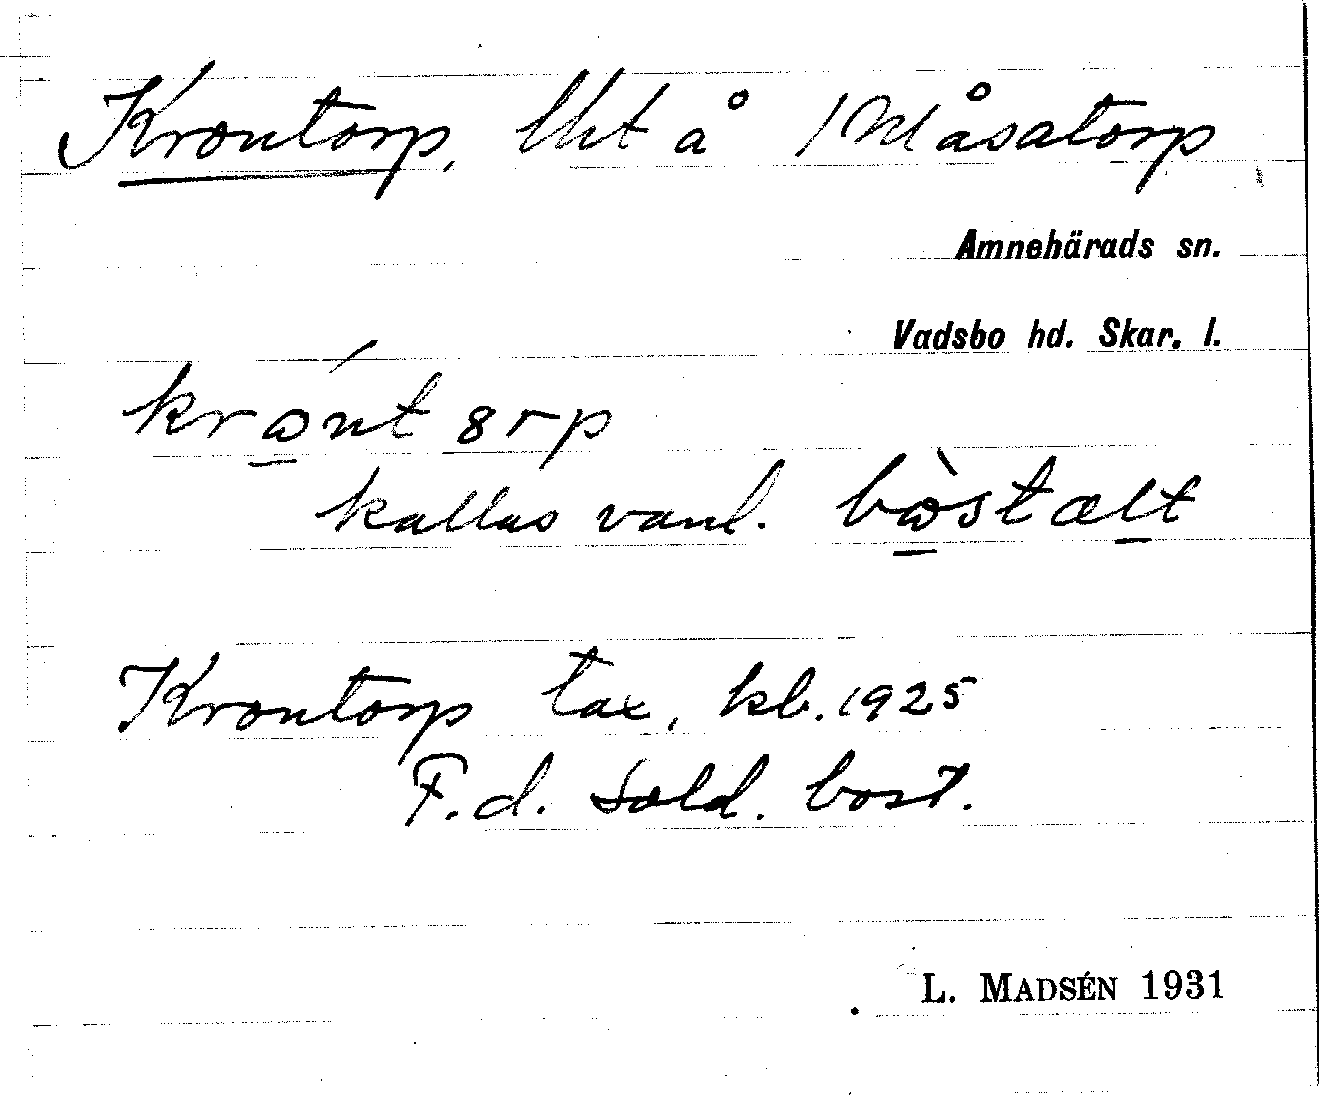 Krontorp, lht å /Måsatorp
Amnehärads sn.
Vadsbo hd. Skar. l.
krɷ́ntȣrp
kallas vanl. bɷ̀stælt
Krontorp tax, kb. 1925
F.d. sold. bost.
L. MADSÉN 1931